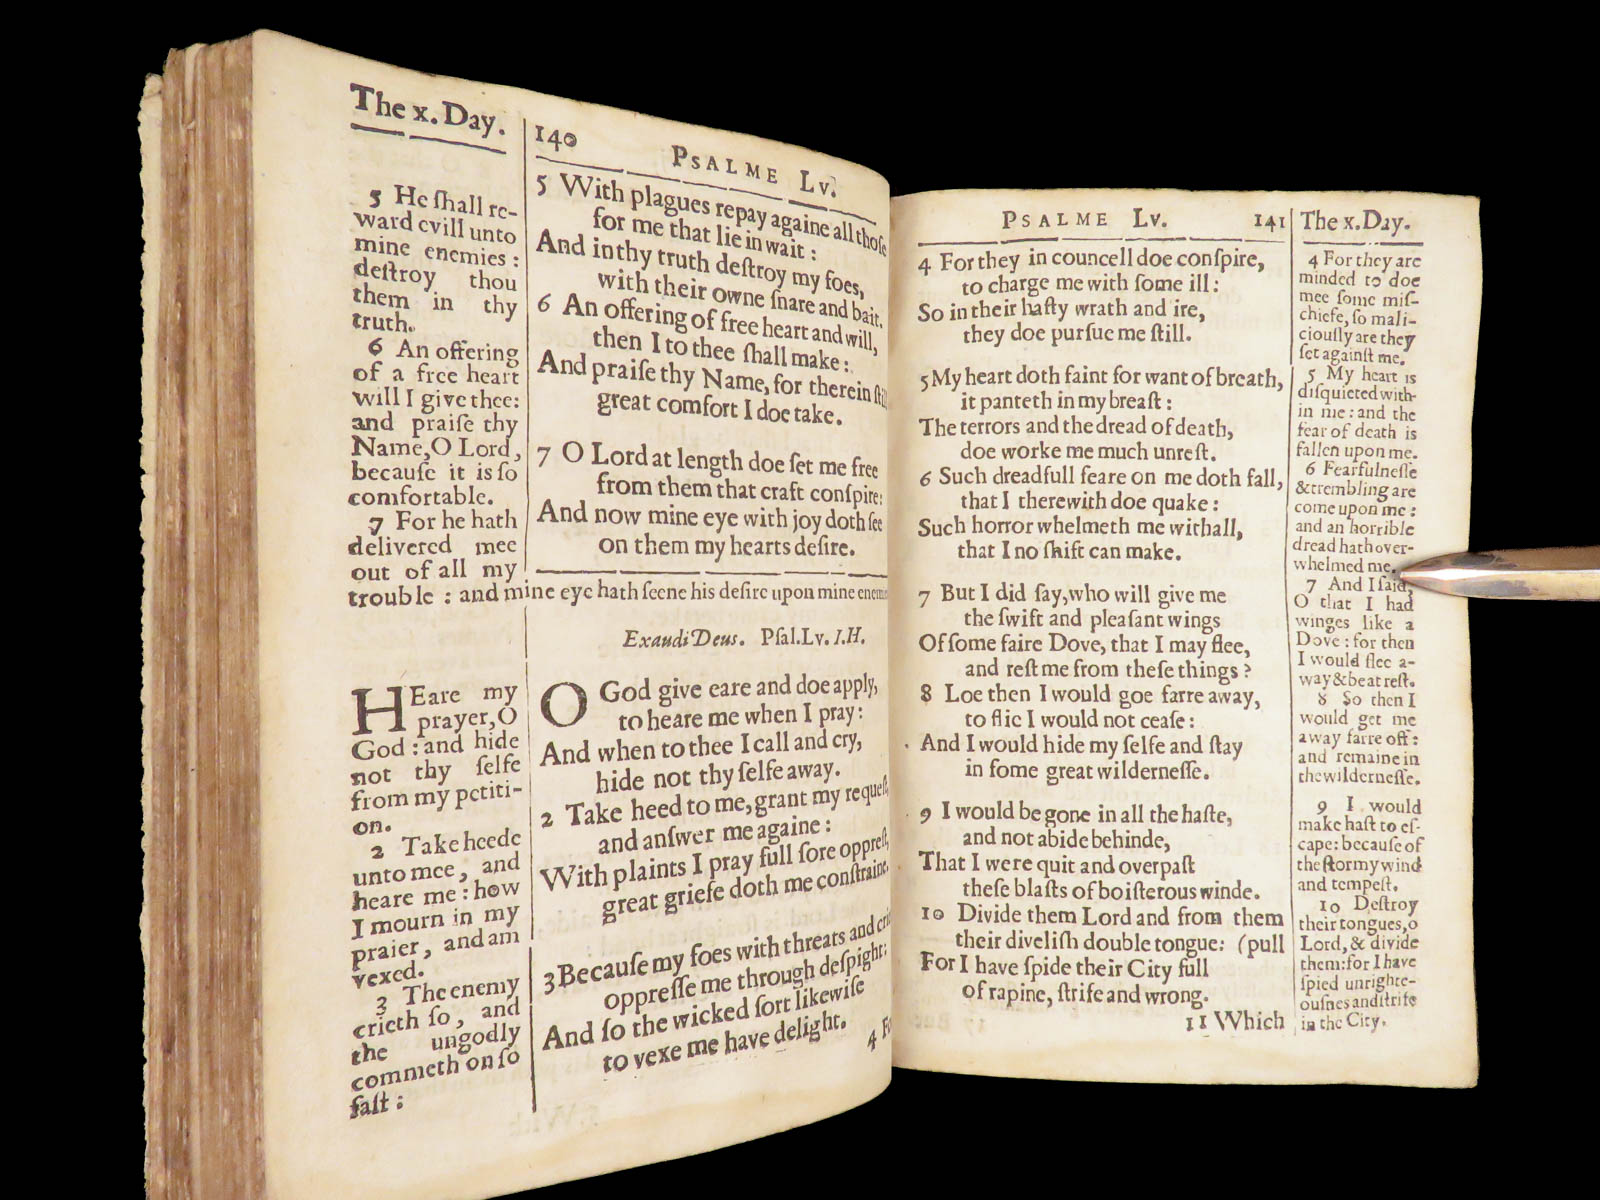 The x. Day.
5 He ſhall re-
ward evill unto
mine enemies :
deſtroy thou
them in thy
truth.
6 An offering
of a free heart
will I give thee:
and praiſe thy
Name, O Lord,
becauſe it is ſo
comfortable.
7 For he hath
delivered mee
out of all my
trouble : and mine eye hath ſeene his deſire upon mine
HEare my
prayer, O
God : and hide
not thy ſelfe
from my petiti-
on.
2 Take heede
unto mee, and
heare me : how
I mourn in my
praier, and am
vexed.
3 The enemy
crieth ſo, and
the ungodly
commeth on ſo
faſt :
140
PSALME Lv.
5 With plagues repay againe all thoſe
for me that lie in wait :
And in thy truth deſtroy my foes,
with their owne ſnare and bait.
6 An offering of free heart and will,
then I to thee ſhall make :
And praiſe thy Name, for therein
great comfort I doe take.
7 O Lord at length doe ſet me free
from them that craft conſpire:
And now mine eye with joy doth ſee
on them my hearts deſire.
Exaudi Deus. Pſal. Lv. I.H.
O God give eare and doe apply,
to heare me when I pray :
And when to thee I call and cry,
hide not thy ſelfe away.
2 Take heed to me, grant my requeſt,
and anſwer me againe :
With plaints I pray full ſore oppreſt,
great griefe doth me conſtraine.
3 Becauſe my foes with threats and
oppreſſe me through deſpight:
And ſo the wicked ſort likewiſe
to vexe me have delight.
4
PSALME Lv.
141
4 For they in councell doe conſpire,
to charge me with ſome ill :
So in their haſty wrath and ire,
they doe purſue me ſtill.
5 My heart doth faint for want of breath,
it panteth in my breaſt :
The terrors and the dread of death,
doe worke me much unreſt.
6 Such dreadfull feare on me doth fall,
that I therewith doe quake :
Such horror whelmeth me withall,
that I no ſhift can make.
7 But I did ſay, who will give me
the ſwift and pleaſant wings
Of ſome faire Dove, that I may flee,
and reſt me from theſe things ?
8 Loe then I would goe farre away,
to flie I would not ceaſe :
And I would hide my ſelfe and ſtay
in ſome great wilderneſſe.
9 I would be gone in all the haſte,
and not abide behinde,
That I were quit and overpaſt
theſe blaſts of boiſterous winde.
10 Divide them Lord and from them
their diveliſh double tongue: (pull
For I have ſpide their City full
of rapine, ſtrife and wrong.
11 Which
The x. Day.
4 For they are
minded to doe
mee ſome miſ-
chiefe, ſo mali-
ciouſly are they
ſet againſt me.
5 My heart is
diſquieted with-
in me : and the
fear of death is
fallen upon me.
6 Fearfulneſſe
& trembling are
come upon me :
and an horrible
dread hath over-
whelmed me.
7 And I ſaid,
O that I had
winges like a
Dove : for then
I would flee a-
way & be at reſt.
8 So then I
would get me
away farre off :
and remaine in
the wilderneſſe.
9 I would
make haſt to eſ-
cape: becauſe of
the ſtormy wind
and tempeſt.
10 Deſtroy
their tongues, o
Lord, & divide
them: for I have
ſpied unrighte-
ouſnes and ſtrife
in the City.